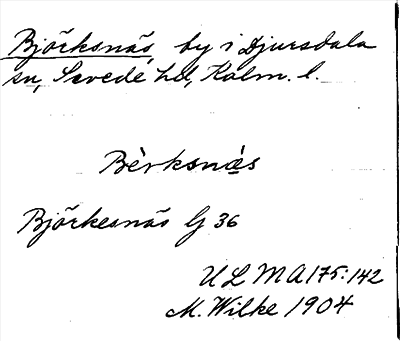 Björksnäs, by i Djursdala
sn, Sevede hd, Kalm. l.
Bèrksnäs
Björkesnäs G 36
ULMA 175:142
M. Wilke 1904